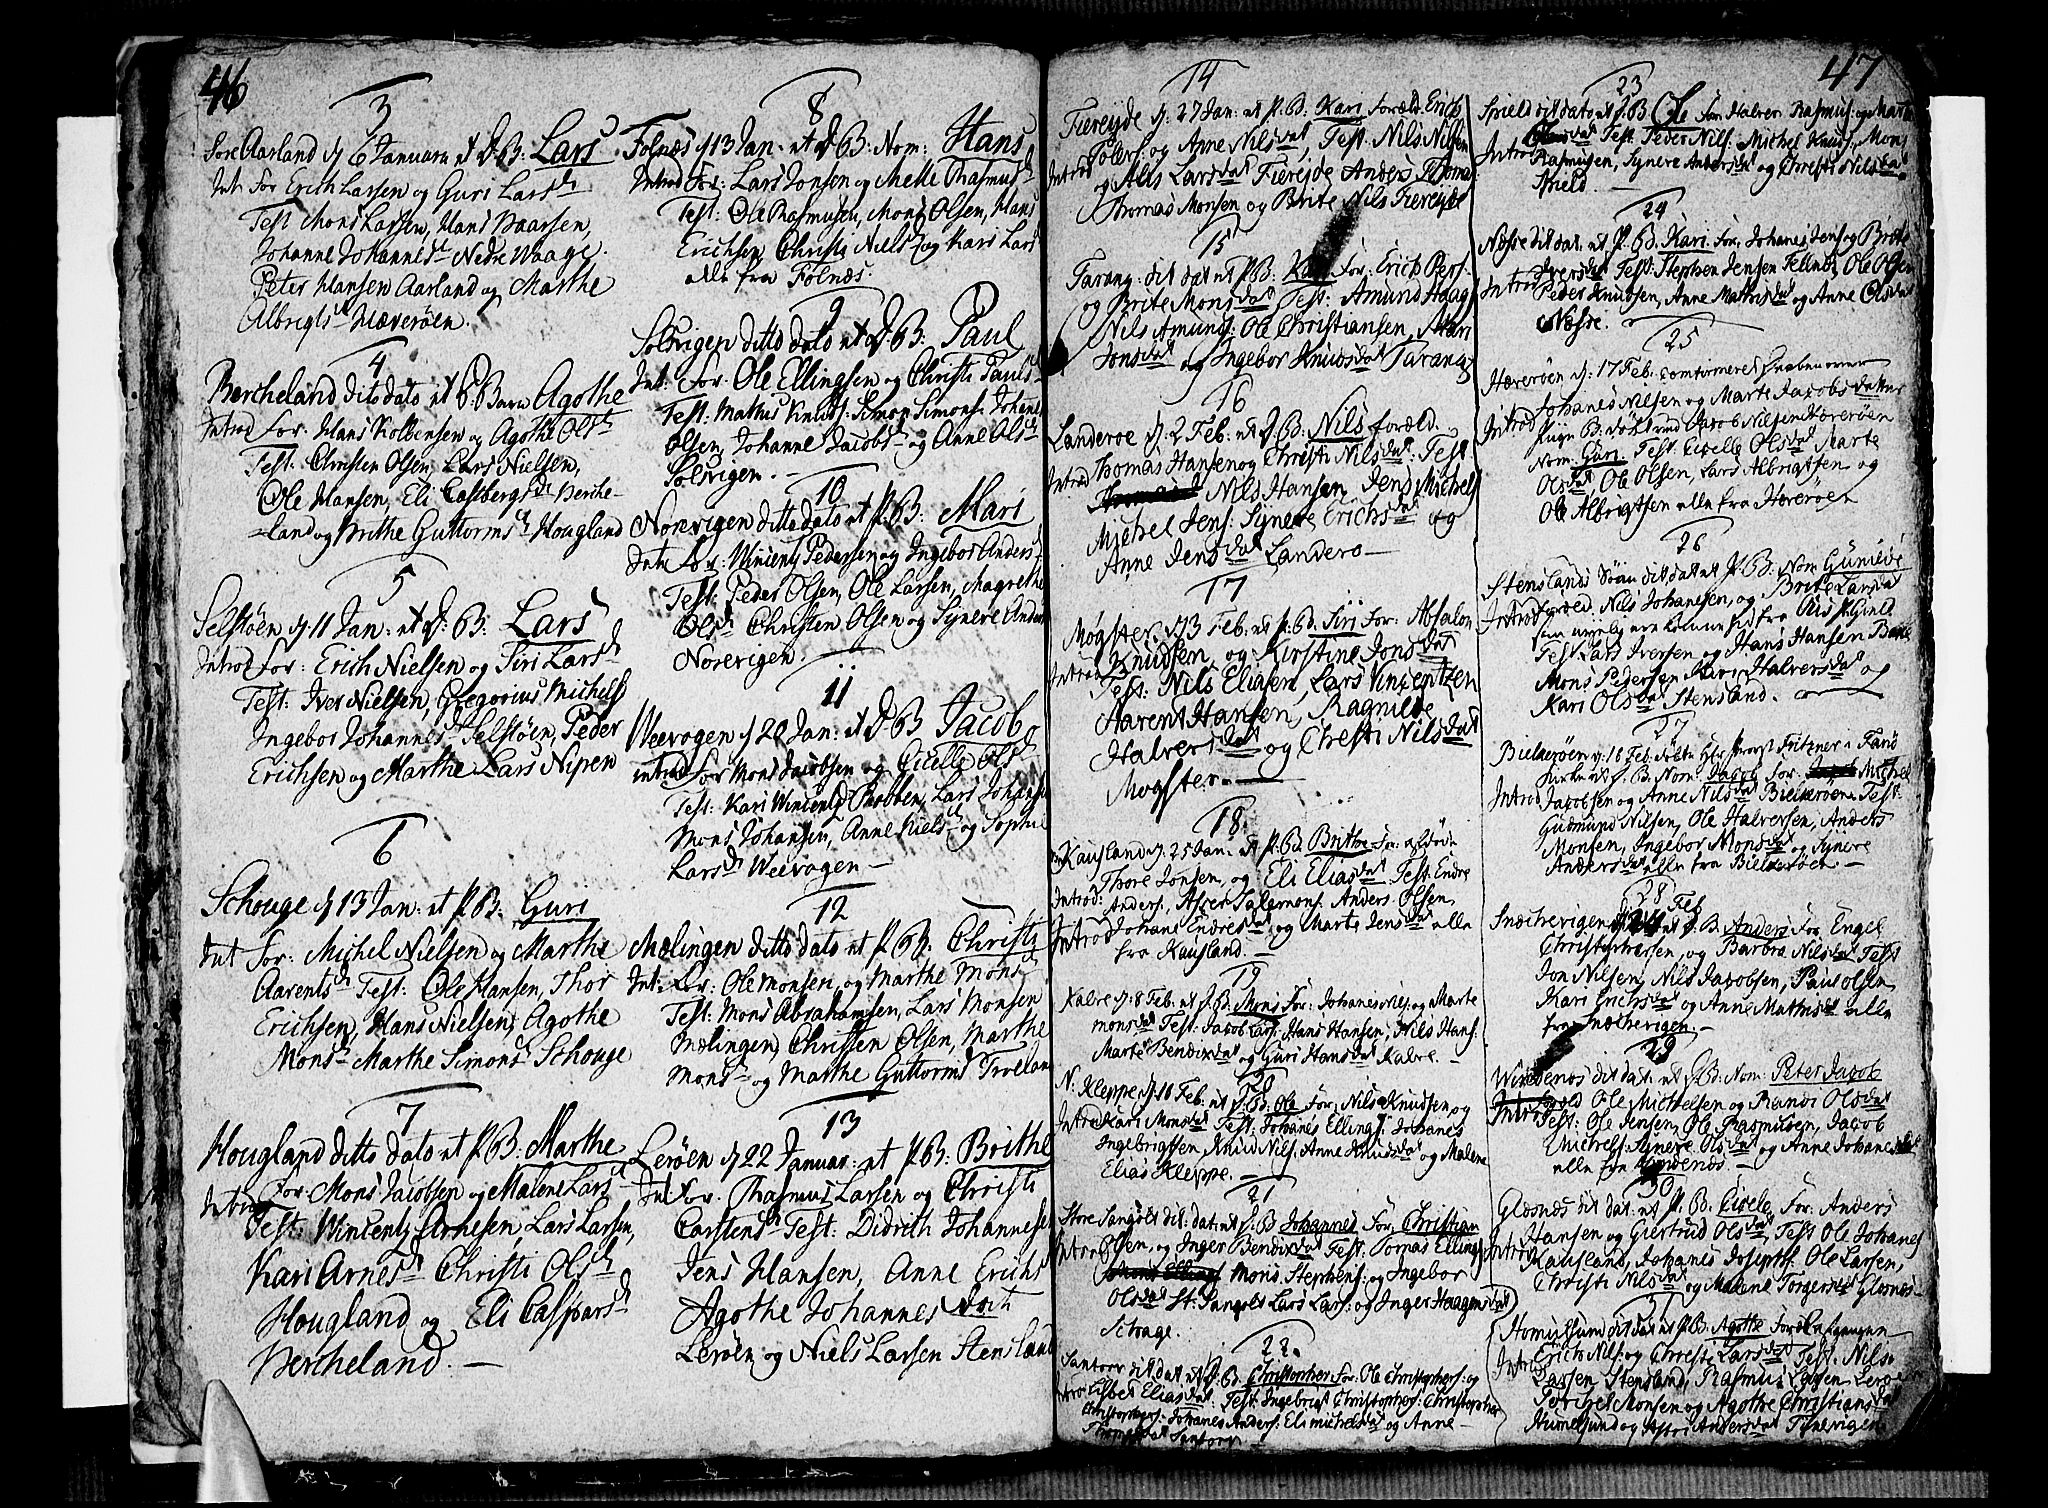 46
3
Aarland d 6 Januarii et D. B: Lars
Int For Erich Larsen og Guri Larsd
Test Mons Larsen, Hans Baarsen,
Johanne Johannesd Nedre Waage
Peter Hansen Aarland og Marthe
Albrigtsd Hæverøen
4
Bercheland dito dato et P: Barn Agothe
Introd For: Hans Kolbensen og Agothe Olsd
Test: Christen Olsen, Lars Nielsen,
Ole Hansen, Eli Casbergsd Berche-
land og Brithe Guttormsd Hougland
5
Selstøen d 11 Jan: et D: B: Lars
Introd For: Erich Nielsen og Siri Larsd
Test: Iver Nielsen, Gregorius Michels
Ingebor Johannesd Selstøen, Peder
Erichsen og Marthe Lars Nipen
6
Schouge d 13 Jan: et P: B: Guri
Int For: Michel Nielsen og Marthe
Aarentsd Test: Ole Hansen, Thor
Erichsen, Hans Nielsen, Agothe
Monsd Marthe Simonsd Schouge
7
Hougland ditto dato et P: B: Marthe
Introd For: Mons Jacobsen og Malene Larsd
Test: Wincentz Arnesen, Lars Larsen,
Kari Arnesd Christi Olsd
Hougland og Eli Caspersd
Bercheland. —
8
Folnæs d 13 Jan: et D: B: Nom: Hans
Introd For: Lars Jonsen og Mette Rasmusd
Test: Ole Rasmusen, Mons Olsen, Hans
Erichsen, Christi Nielsd og Kari Lars
alle fra Folnæs.
9
Solvigen ditto dato et D. B: Paul
Int: For. Ole Ellingsen og Christi Pauls
Test: Mathis Knuds: Simon Simons: Johan
Olsen, Johanne Jacobsd og Anne Olsd
Solvigen. —
10
Norevigen ditto dato et P: B: Mari
Int: For: Wincentz Pedersen og Ingebor Anders
Test: Peder Olsen, Ole Larsen, Magrethe
Olsd Christen Olsen og Synere Anders
Norevigen.
11
Weevogen d 20 Jan: et D B Jacob
introd For Mons Jacobsen og Cicelle Olsd
Test: Kari Wincentz Knobben, Lars Johans
Mons Johansen, Anne Nielsd og Sophie
Larsd Weevogen —
12
Mælingen ditto dato et P. B: Christi
Int: For: Ole Monsen, og Marthe Monsd
Test: Mons Abrahamsen, Lars Monsen
Mælingen, Christen Olsen, Marthe
Monsd og Marthe Guttormsd Troeland
13
Lerøen d 22 Januar: et P: B: Brithe
Int For. Rasmus Larsen og Christi
Carstensd Test: Didrich Johannes
Jens Hansen, Anne Erichs
Agothe Johannes Doct
Lerøen og Niels Larsen Stensland
47
14
Fiereide d: 27 Jan: et P. B. Kari Foræld. Erich
Introd og Anne Nilsdat, Test. Nils Nilsen
og Alis Larsdat Fiereide Anders Thomas
Thomas Monsen og Brite Nils Fiereide
15
Tarang: dit dat et P: B: For: Erich Pers.
og Brite Monsdat Test: Amund Haag
Nils Amunds: Ole Christiansen, Mari
Jonsdat og Ingebor Knudsdat Tarang
16
Landeroe d: 2 Feb: et D. B: Nils foræld.
Introd Thomas Hansen og Christi Nilsdat. Test
Nils Hansen, Jens Michels
Michel Jens: Synere Erichsdat og
Anne Jensdat Landero —
17
Møgster. d 13 Feb: et P. B. Siri For: Absalon
Introd Knudsen, og Kirstine Jonsdat
Test: Nils Eliasen, Lars Vincentzen
Aarent Hansen, Ragnilde
Halversdat og Christi Nilsdat
Møgster. —
18
Kausland d. 25 Jan. et P. B. Brithe For: afdøde
Thore Jonsen, og Eli Eliasdat Test. Endre
Introd: Anders: Asser Salemons: Anders Olsen,
Introd Johane Endresdat og Marte Jensdat alle
fra Kausland. —
19
Kalve d: 8 Feb: et D. B: Mons For: Johanes Nils: og Marte
Monsdat Test: Jacob Lars: Hans Hansen, Nils Hans:
Marte Bendixdat og Guri Hansdat Kalve. —
20
N: Kleppe d 16 Feb. et D. B. Ole For, Nils Knudsen og
Introd Kari Monsdat Test. Johanes Ellings: Johanes
Ingebrigtsen, Knud Nils: Anne Knudsdat og Malene
Elias Kleppe. —
21
Store Sangolt dit: dat: et D. B Johannes For, Christian
Introd Olsen, og Inger Bendixdat Test. Tomas Ellings
Mons Stephens: og Ingebor
Olsdat St: Sangolt Lars Lars: og Inger Haagensdat
Schage.
22.
Santorv dit dat et D. B. Christopher For: Ole Christophers: og
Intro Lisbet Eliasdat: Test: Ingebrigt Christophers: Christopher
Christophers: Johanes Anders: Eli Michelsdat og Anne —
Thomasdat Santorv
23
Spield dit dato et D: B Ole For Halver Rasmus: og Marte
Test. Peder Nils: Michel Knuds, Mons
Introd Rasmusen, Synere Andersdat og Christi Nilsdat
Spield. —
24
Næsse dit dat. et P. B. Kari For, Johanes Jens og Brite
Iversdat Test: Stephen Jensen Ole Olsen
Introd Peder Knudsen, Anne Mathisdat og Anne Olsdat
Næsse.
25
Hæverøen d: 17 Feb. comfirmeret
Johanes Nilsen og Marte Jacobsdatter
Introd Jacob Nilsen Hæverøen
Nom. Guri. Test. Cicelle Olsdat Marte
Olsdat Ole Olsen, Lars Albrigtsen og
Ole Albrigtsen alle fra Hæverøen
26
Stenslands dit dat et P. B. Nom Gunilde
Introd Foræl. Nils Johanesen, og Brite Larsdat
Test. Lars Iversen og Hans Hansen
Mons Pedersen Kari Halversdat og
Kari Olsdat Stensland. —
27
Bielkerøen d: 16 Feb. døbt Provst Fritzner i
et D. B. Nom. Jacob For. Michel
Introd Jacobsen og Anne Nilsdat Bielkerøen Test:
Gudmund Nilsen, Ole Halversen, Anders
Monsen, Ingebor Monsdat og Synere
Andersdat alle fra Bielkerøen —
28 Feb
Snæchevigen et D. B. Anders For, Engel
Christophersen, og Barbra Nilsdat Test
Jon Nilsen, Nils Jacobsen, Paul Olsen
Kari Erichsdat og Anne Mathisdat alle
fra Snæchevigen. —
29
Windenes dit dat. et D: B: Nom: Peter Jacob
Introd Ole Michelsen og Randi Olsdat
Test: Ole Jensen, Ole Rasmusen, Jacob
Michels: Synere Olsdat og Anne Johanesdat
alle fra Windenes —
30
Glesnes dit dat. et P. B. Cicele For. Anders
Hansen og Giertrud Olsdat, Test Ole Johanes
Introd Kausland, Johanes Josephs: Ole Larsen,
Christi Nilsdat og Malene Torgersdat Glesnes
31
Homulsund dit dat et P. B. Agothe
Introd Erich Nils: og Christi Larsdat Test. Nils
Larsen Stensland, Rasmus Larsen Lerøe
Torchel Monsen og Agothe Christiansdat
Humelsund og Andersdat